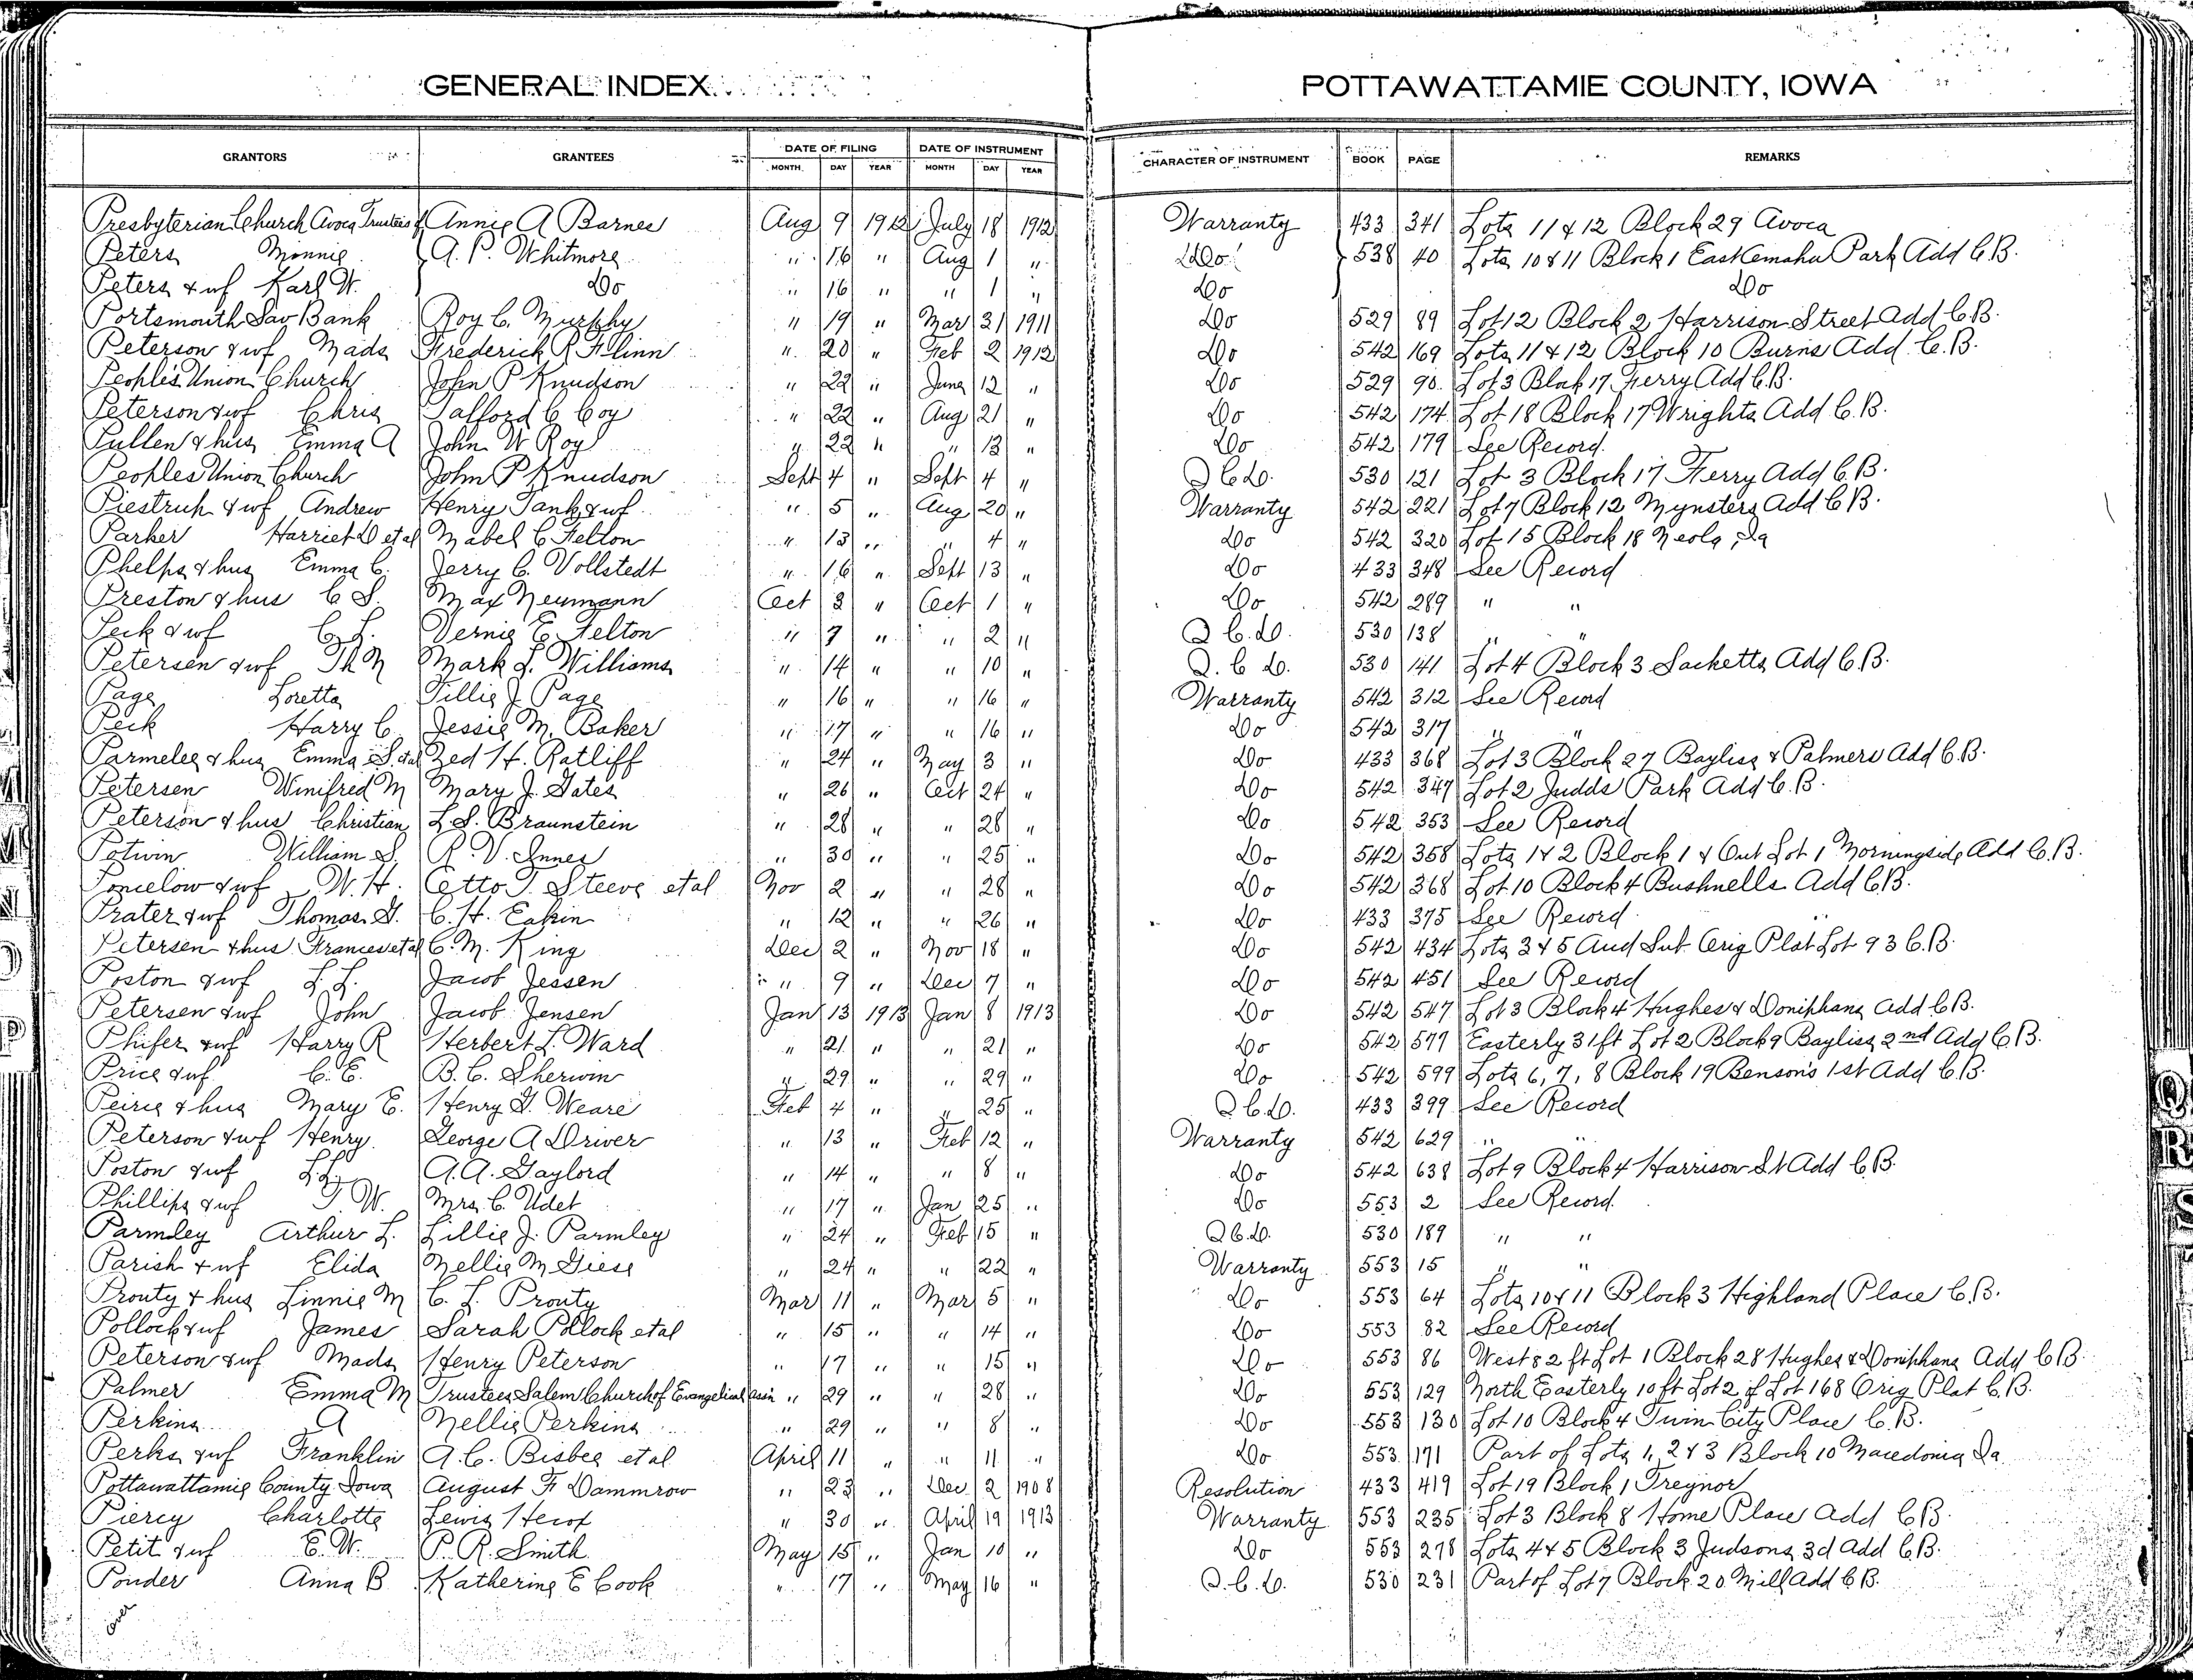 GENERAL INDEX
POTTAWATTAMIE COUNTY, IOWA
GRANTORS GRANTEES DATE OF FILING DATE OF INSTRUMENT CHARACTER OF INSTRUMENT BOOK PAGE REMARKS
MONTH DAY YEAR MONTH DAY YEAR
Presbyterian Church Avoca Trustees of Annie A Barnes Aug 9 1912 July 18 1912 Warranty 433 341 Lots 11 & 12 Block 29 Avoca
Peters Minnie } A. P. Whitmore " 16 " Aug 1 " Do } 538 40 Lots 10 & 11 Block 1 East Kemaha Park Add C.B.
Peters & wf Karl W. Do " 16 " " 1 " Do Do
Portsmouth Sav Bank Roy C. Murphy " 19 " Mar 31 1911 Do 529 89 Lot 12 Block 2 Harrison Street Add C.B.
Peterson & wf Mads Frederick R Flinn " 20 " Feb 2 1912 Do 542 169 Lots 11 & 12 Block 10 Burns Add C.B.
Peoples Union Church John P Knudson " 22 " June 12 " Do 529 90 Lot 3 Block 17 Ferry Add C.B.
Peterson & wf Chris Tafford C Coy " 22 " Aug 21 " Do 542 174 Lot 18 Block 17 Wrights Add C.B.
Pullen & hus Emma A John W Roy " 22 " " 13 " Do 542 179 See Record.
Peoples Union Church John P Knudson Sept 4 " Sept 4 " Q C.D. 530 121 Lot 3 Block 17 Ferry Add C.B.
Piestrup & wf Andrew Henry Tank & wf " 5 " Aug 20 " Warranty 542 221 Lot 7 Block 12 Mynsters Add C.B.
Parker Harriet D et al Mabel C Felton " 13 " " 4 " Do 542 320 Lot 15 Block 18 Neola, Ia
Phelps & hus Emma C. Jerry C. Vollstedt " 16 " Sept 13 " Do 433 348 See Record
Preston & hus C S. Max Neumann Oct 3 " Oct 1 " Do 542 289 " "
Peck & wf C. L. Vernie E. Felton " 7 " " 2 " Q C.D. 530 138 " "
Petersen & wf Th M Mark L. Williams " 14 " " 10 " Q. C D. 530 141 Lot 4 Block 3 Sacketts Add C.B.
Page Loretta Tillie J. Page " 16 " " 16 " Warranty 542 312 See Record
Peck Harry C. Jessie M. Baker " 17 " " 16 " Do 542 317 " "
Parmelee & hus Emma S. et al Zed H. Ratliff " 24 " May 3 " Do 433 368 Lot 3 Block 27 Bayliss & Palmers Add C.B.
Petersen Winifred M Mary J. Gates " 26 " Oct 24 " Do 542 347 Lot 2 Judds Park Add C.B.
Peterson & hus Christian L. S. Braunstein " 28 " " 28 " Do 542 353 See Record
Potwin William S. R. V. Innes " 30 " " 25 " Do 542 358 Lots 1 & 2 Block 1 & Out Lot 1 Morningside Add C.B.
Poncelow & wf W. H. Otto T. Steeve et al Nov 2 " " 28 " Do 542 368 Lot 10 Block 4 Bushnells Add C.B.
Prater & wf Thomas G. C. H. Eakin " 12 " " 26 " Do 433 375 See Record
Petersen & hus Frances et al C. M. King Dec 2 " Nov 18 " Do 542 434 Lots 3 & 5 Aud Sub Orig Plat Lot 93 C.B.
Poston & wf L. L. Jacob Jessen " 9 " Dec 7 " Do 542 451 See Record
Petersen & wf John Jacob Jensen Jan 13 1913 Jan 8 1913 Do 542 547 Lot 3 Block 4 Hughes & Doniphans Add C.B.
Phifer & wf Harry R Herbert L. Ward " 21 " " 21 " Do 542 577 Easterly 31 ft Lot 2 Block 9 Bayliss 2nd Add C.B.
Price & wf C. E. B. C. Sherwin " 29 " " 29 " Do 542 599 Lots 6, 7, 8 Block 19 Benson's 1st Add C.B.
Peirce & hus Mary E. Henry G. Weare Feb 4 " " 25 " Q C.D. 433 399 See Record
Peterson & wf Henry George A Driver " 13 " Feb 12 " Warranty 542 629 " "
Poston & wf L. L. A. A. Gaylord " 14 " " 8 " Do 542 638 Lot 9 Block 4 Harrison St Add C.B.
Phillips & wf T. W. Mrs. C. Udet " 17 " Jan 25 " Do 553 2 See Record.
Parmley Arthur L. Lillie J. Parmley " 24 " Feb 15 " Q C.D. 530 189 " "
Parish & wf Elida Nellie M Giese " 24 " " 22 " Warranty 553 15 " "
Prouty & hus Linnie M C. L. Prouty Mar 11 " Mar 5 " Do 553 64 Lots 10 & 11 Block 3 Highland Place C.B.
Pollock & wf James Sarah Pollock et al " 15 " " 14 " Do 553 82 See Record
Peterson & wf Mads Henry Peterson " 17 " " 15 " Do 553 86 West 82 ft Lot 1 Block 28 Hughes & Doniphans Add C.B.
Palmer Emma M Trustees Salem Church of Evangelical Assn " 29 " " 28 " Do 553 129 North Easterly 10 ft Lot 2 of Lot 168 Orig Plat C.B.
Perkins A Nellie Perkins " 29 " " 8 " Do 553 130 Lot 10 Block 4 Twin City Place C.B.
Perks & wf Franklin A. C. Bisbee et al April 11 " " 11 " Do 553 171 Part of Lots 1, 2 & 3 Block 10 Macedonia Ia
Pottawattamie County Iowa August F Dammrow " 23 " Dec 2 1908 Resolution 433 419 Lot 19 Block 1 Treynor
Piercy Charlotte Lewis Herox " 30 " April 19 1913 Warranty 553 235 Lot 3 Block 8 Home Place Add C.B.
Petit & wf E. W. P. R. Smith May 15 " Jan 10 " Do 553 278 Lots 4 & 5 Block 3 Judsons 3d Add C.B.
Ponder Anna B Katherine E Cook " 17 " May 16 " Q. C. D. 530 231 Part of Lot 7 Block 20 Mill Add C.B.
over